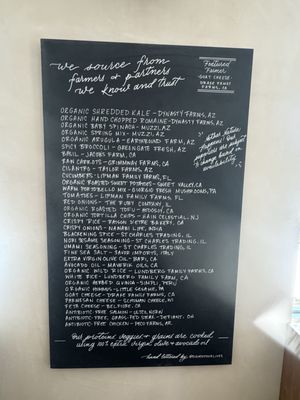 we source from
farmers & partners
we know and trust
Featured
Farmer
GOAT CHEESE
DRAKE FAMILY
FARMS, CA
ORGANIC SHREDDED KALE - DYNASTY FARMS, AZ
ORGANIC HAND CHOPPED ROMAINE - DYNASTY FARMS, AZ
ORGANIC BABY SPINACH - MUZZI, AZ
ORGANIC SPRING MIX - MUZZI, AZ
ORGANIC ARUGULA - EARTHBOUND FARM, AZ
SPICY BROCCOLI - GREENGATE FRESH, AZ
BASIL - JACOBS FARM, CA
RAW CARROTS - GRIMMWAY FARMS, CA
CILANTRO - TAYLOR FARMS, AZ
CUCUMBERS - LIPMAN FAMILY FARMS, FL
ORGANIC ROASTED SWEET POTATOES - SWEET VALLEY, CA
WARM PORTOBELLO MIX - GIORGIO FRESH MUSHROOMS, PA
TOMATOES - LIPMAN FAMILY FARMS, FL
RED ONIONS - THE RUBY COMPANY,
ORGANIC ROASTED TOFU - HODOSOY, CA
ORGANIC TORTILLA CHIPS - HAIN CELESTIAL, NJ
CRISPY RICE - BAKERY, CA
CRISPY ONIONS - MANABI LIFE, INDIA
BLACKENING SPICE - ST CHARLES TRADING, IL
NORI SESAME SEASONING - ST CHARLES TRADING, IL
UMAMI SEASONING - ST CHARLES TRADING, IL
FINE SEA SALT - SAVOR IMPORTS, ITALY
EXTRA VIRGIN OLIVE OIL - BARI, CA
AVOCADO OIL - MAVERIK OILS, CA
ORGANIC WILD RICE - LUNDBERG FAMILY FARMS, CA
WHITE RICE - LUNDBERG FAMILY FARM, CA
ORGANIC HERBED QUINOA - SIMPLI, PERU
ORGANIC HUMMUS - LITTLE SESAME,
GOAT CHEESE - DRAKE FAMILY FARMS, CA
PARMESAN CHEESE - SCHUMAN CHEESE, WI
FETA CHEESE - BELFIORE, CA
ANTIBIOTIC-FREE SALMON -
ANTIBIOTIC-FREE, GRASS-FED STEAK -
ANTIBIOTIC-FREE CHICKEN - PECO FARMS, AR
Mother Nature
Happens! Our
are subject
to change based on
availability
our proteins, veggies & grains are cooked
using 100% extra virgin olive & avocado oil
hand lettered by: